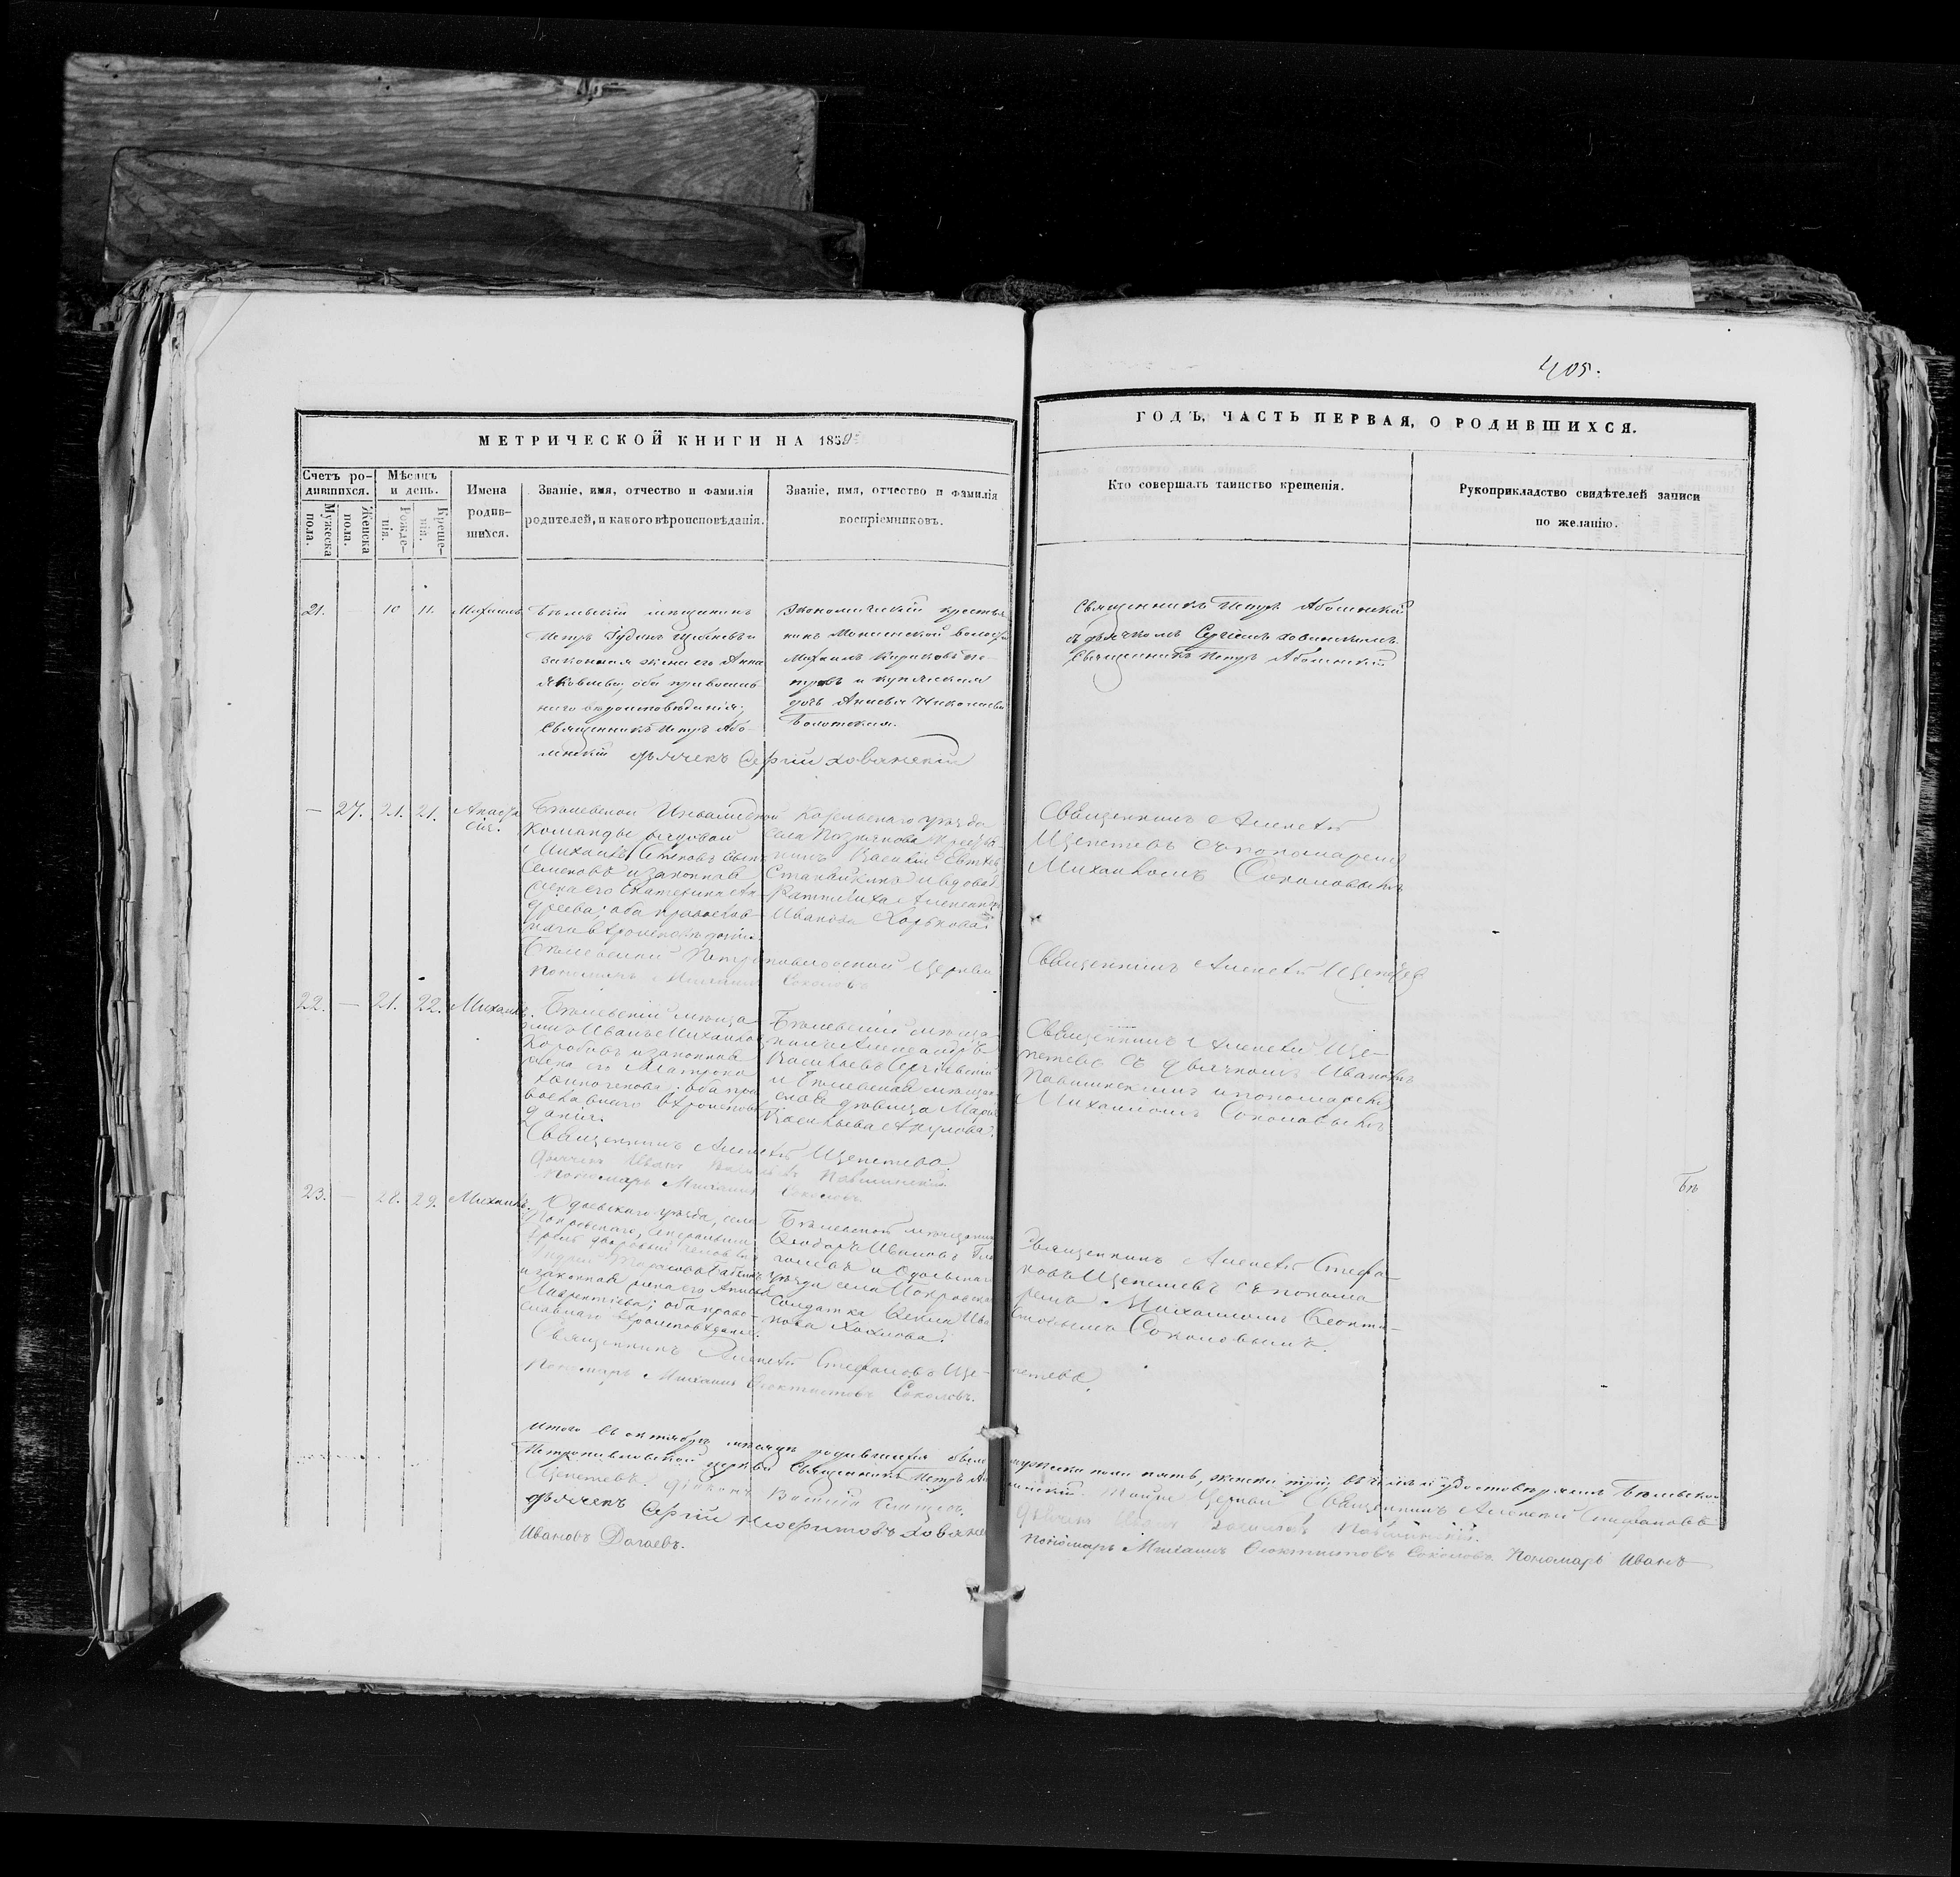 405.
МЕТРИЧЕСКОЙ КНИГИ НА 185
ГОДЪ, ЧАСТЬ ПЕРВАЯ, О РОДИВШИХСЯ.
Счетъ родившихся.
Мужеска пола.
Женска пола.
Мѣсяцъ и день.
Рожденія.
Крещенія.
Имена родив-
шихся.
Званіе, имя, отчество и фамилія
родителей, и какого вѣроисповѣданія.
Званіе, имя, отчество и фамилія
воспріемниковъ.
Кто совершалъ таинство крещенія.
Рукоприкладство свидѣтелей записи
по желанію.
21.
10
11.
Михаилъ
Бѣлевскій мѣщанинъ
Петръ
законная жена его Анна
Яковлева, оба православ-
наго вѣроисповѣданія;
Священникъ Петръ Або-
ленскій дьячекъ Сергій Хованскій
Экономическій крестья-
нинъ волости
Михаилъ Кириловъ Пе-
тровъ и купеческая
дочь Николаева
Болотская.
Священникъ Петръ Аболенскій
съ дьячкомъ Сергіемъ Хованскимъ.
Священникъ Петръ Аболенскій
—
27.
21.
21.
Анаста
сія.
Бѣлевской Инвалидной
Команды рядовой
Михаилъ Семеновъ
Семеновъ и законная
жена его Екатерина Ан-
дреева; оба православ-
наго вѣроисповѣданія.
Бѣлевской Петропавловской Церкви
Пономарь Михаилъ Соколовъ
уѣзда
села
Василій
и вдова
Иванова Хорькова.
Священникъ Алексѣй
Щепетевъ съ пономаремъ
Михаиломъ Соколовымъ
Священникъ Алексѣй Щепетев
22.
—
21.
22.
Михаилъ.
Бѣлевскій мѣща-
нинъ Иванъ Михайлов
Коробовъ и законная
жена его Матрона
оба пра-
вославнаго вѣроисповѣ-
данія.
Священникъ Алексѣй Щепетевъ.
Дьячекъ Иванъ Васильевъ Павшинскій
Пономарь Михаилъ Соколовъ
Бѣлевскій мѣща-
нинъ Александръ
Васильевъ Сергіевскій
и Бѣлевская мѣщан-
ская дѣвица Марья
Васильева Акулова.
Священникъ Алексѣй Ще-
петевъ съ дьячкомъ Иваномъ
Павшинскимъ и пономаремъ
Михаиломъ Соколовымъ
23.
—
28.
29.
Михаилъ.
Одоевскаго уѣзда, села
Покровскаго,
дворовый человѣкъ
и законная жена его Анисья
Лаврентіева; оба право-
славнаго вѣроисповѣданія.
Священникъ Алексѣй Стефановъ Ще-петевъ
Пономарь Михаилъ Ѳеоктистовъ Соколовъ.
Бѣлевской мѣщанинъ
Ѳеодоръ Ивановъ
и Одоевскаго
уѣзда села Покровскаго
Солдатка Ѳекла Ива-
нова Хохлова.
Священникъ Алексѣй Стефа-
новъ Щепетевъ съ понома-
ремъ Михаиломъ Ѳеокти-
стовымъ Соколовымъ.
Бѣ
Итого въ октябрѣ мѣсяцѣ родившихся было мужеска пола пять, женска три; Бѣлевской
Петропавловской церкви Священникъ Петръ Аболенскій. Тойже Церкви Священникъ Алексѣй Стефановъ
Щепетевъ. Діаконъ Василій Дьячекъ Иванъ Васильевъ Павшинскій.
Дьячекъ Сергій Хованскій Пономарь Михаилъ Ѳеоктистовъ Соколовъ. Пономарь Иванъ
Ивановъ Дагаевъ.